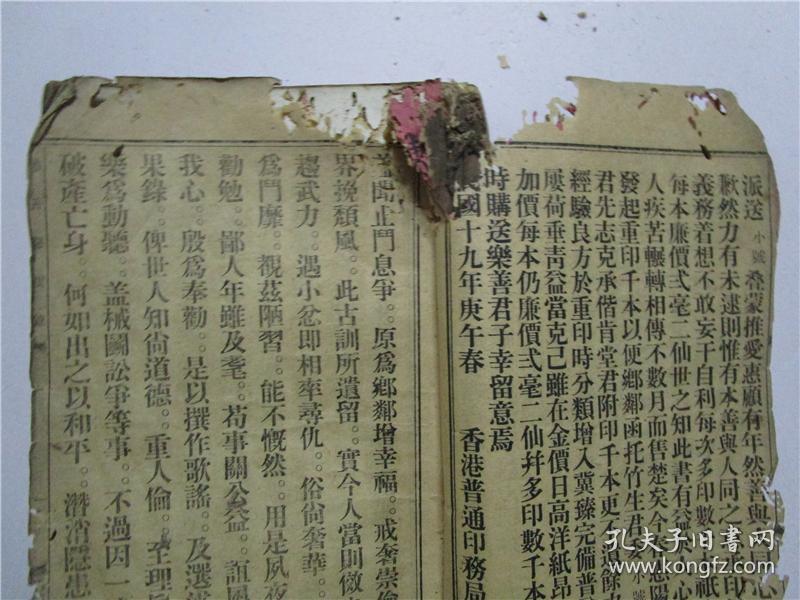 派送小號叠蒙推愛惠顧有年然善與人同心
歉然力有未逮則惟有本善與人同之
義務着想不敢妄干自利每次多印數千
每本廉價弍毫二仙世之知此書有益
人疾苦輾轉相傳不數月而售楚矣今
發起重印千本以便鄉鄰函托竹生君
君先志克承偕肯堂君附印千本更不
經驗良方於重印時分類增入冀臻完備普
屢荷垂靑益當克己雖在金價日高洋紙昂
加價每本仍廉價弍毫二仙并多印數千本
時購送樂善君子幸留意焉
民國十九年庚午春 香港普通印務局
蓋聞止鬥息爭。原爲鄉鄰增幸福。戒奢崇儉
界挽頹風。此古訓所遺留。實今人當則傚
趨武力。遇小忿即相率尋仇。俗尙奢華。
爲鬥靡。觀茲陋習。能不慨然。用是夙夜
勸勉。鄙人年雖及耄。苟事關公益。誼
我心。殷爲奉勸。是以撰作歌謠。及選
果錄。俾世人知尙道德。重人倫。至理
樂爲動聽。蓋械鬬訟爭等事。不過因一
破產亡身。何如出之以和平。潛消隱患
孔夫子旧书网
www.kongfz.com